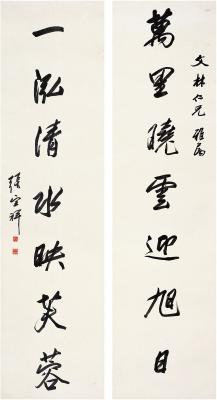 萬里曉雲迎旭日
文林仁兄雅屬
一泓清水映芙蓉